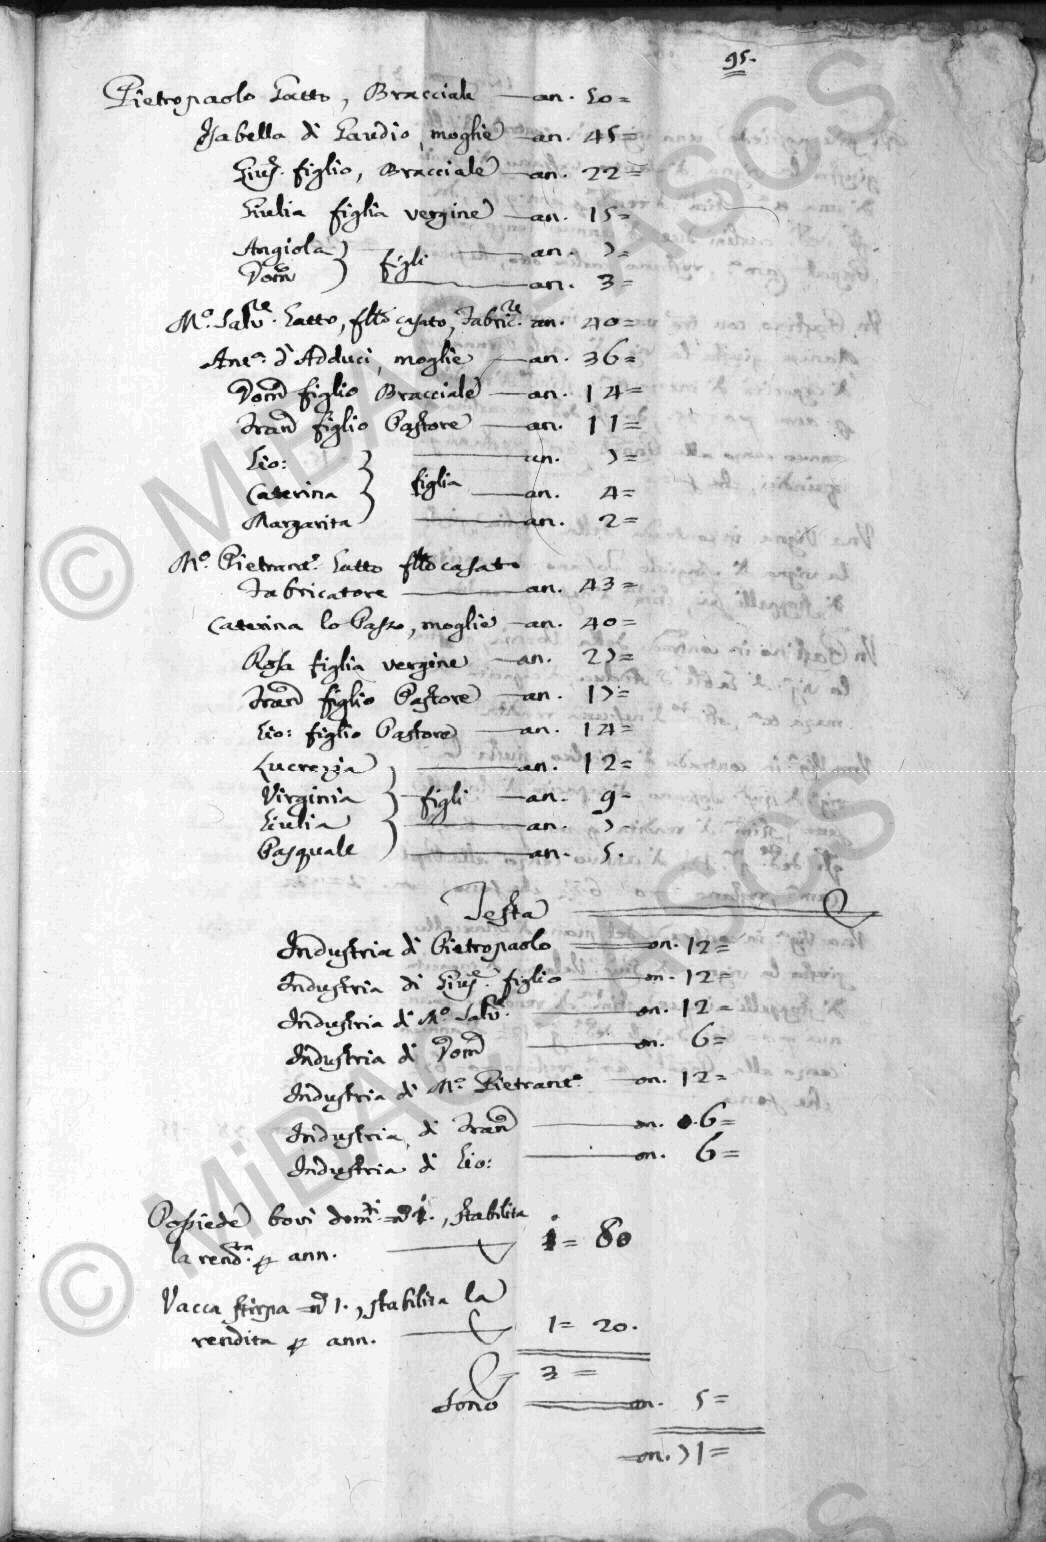 95.
Pietropaolo Gatto, Bracciale an. 50=
Isabella di Gaudio, moglie an. 45=
Gius.e figlio, Bracciale an. 22=
Giulia figlia vergine an. 15=
Angiola an. 7=
Dom.co figli an. 3=
M.o Salv.re Gatto, fllo casato, Fabric.re an. 40=
Ant.a d'Adduci, moglie an. 36=
Dom.co figlio Bracciale an. 14=
Fran.co figlio Pastore an. 11=
Gio: an. 7=
Caterina figlia an. 4=
Margarita an. 2=
M.o Pietrant.o Gatto fllo casato
Fabricatore an. 43=
Caterina lo Passo, moglie an. 40=
Rosa figlia vergine an. 27=
Fran.co figlio Pastore an. 17=
Gio: figlio Pastore an. 14=
Lucrezia an. 12=
Virginia figli an. 9=
Giulia an. 7
Pasquale an. 5.
Testa
Industria di Pietropaolo on. 12=
Industria di Gius.e figlio on. 12=
Industria di M.o Salv.re on. 12=
Industria di Dom.co on. 6=
Industria di M.o Pietrant.o on. 12=
Industria di Fran.co on. 6=
Industria di Gio: on. 6=
Possiede bovi dom.ti n.o 1., stabilita
la rend.ta p ann. 1= 80
Vacca stirpa n.o 1., stabilita la
rendita p ann. 1= 20.
3=
Sono on. 5=
on. 71=
© MiBAC - ASCS
© MiBAC - ASCS